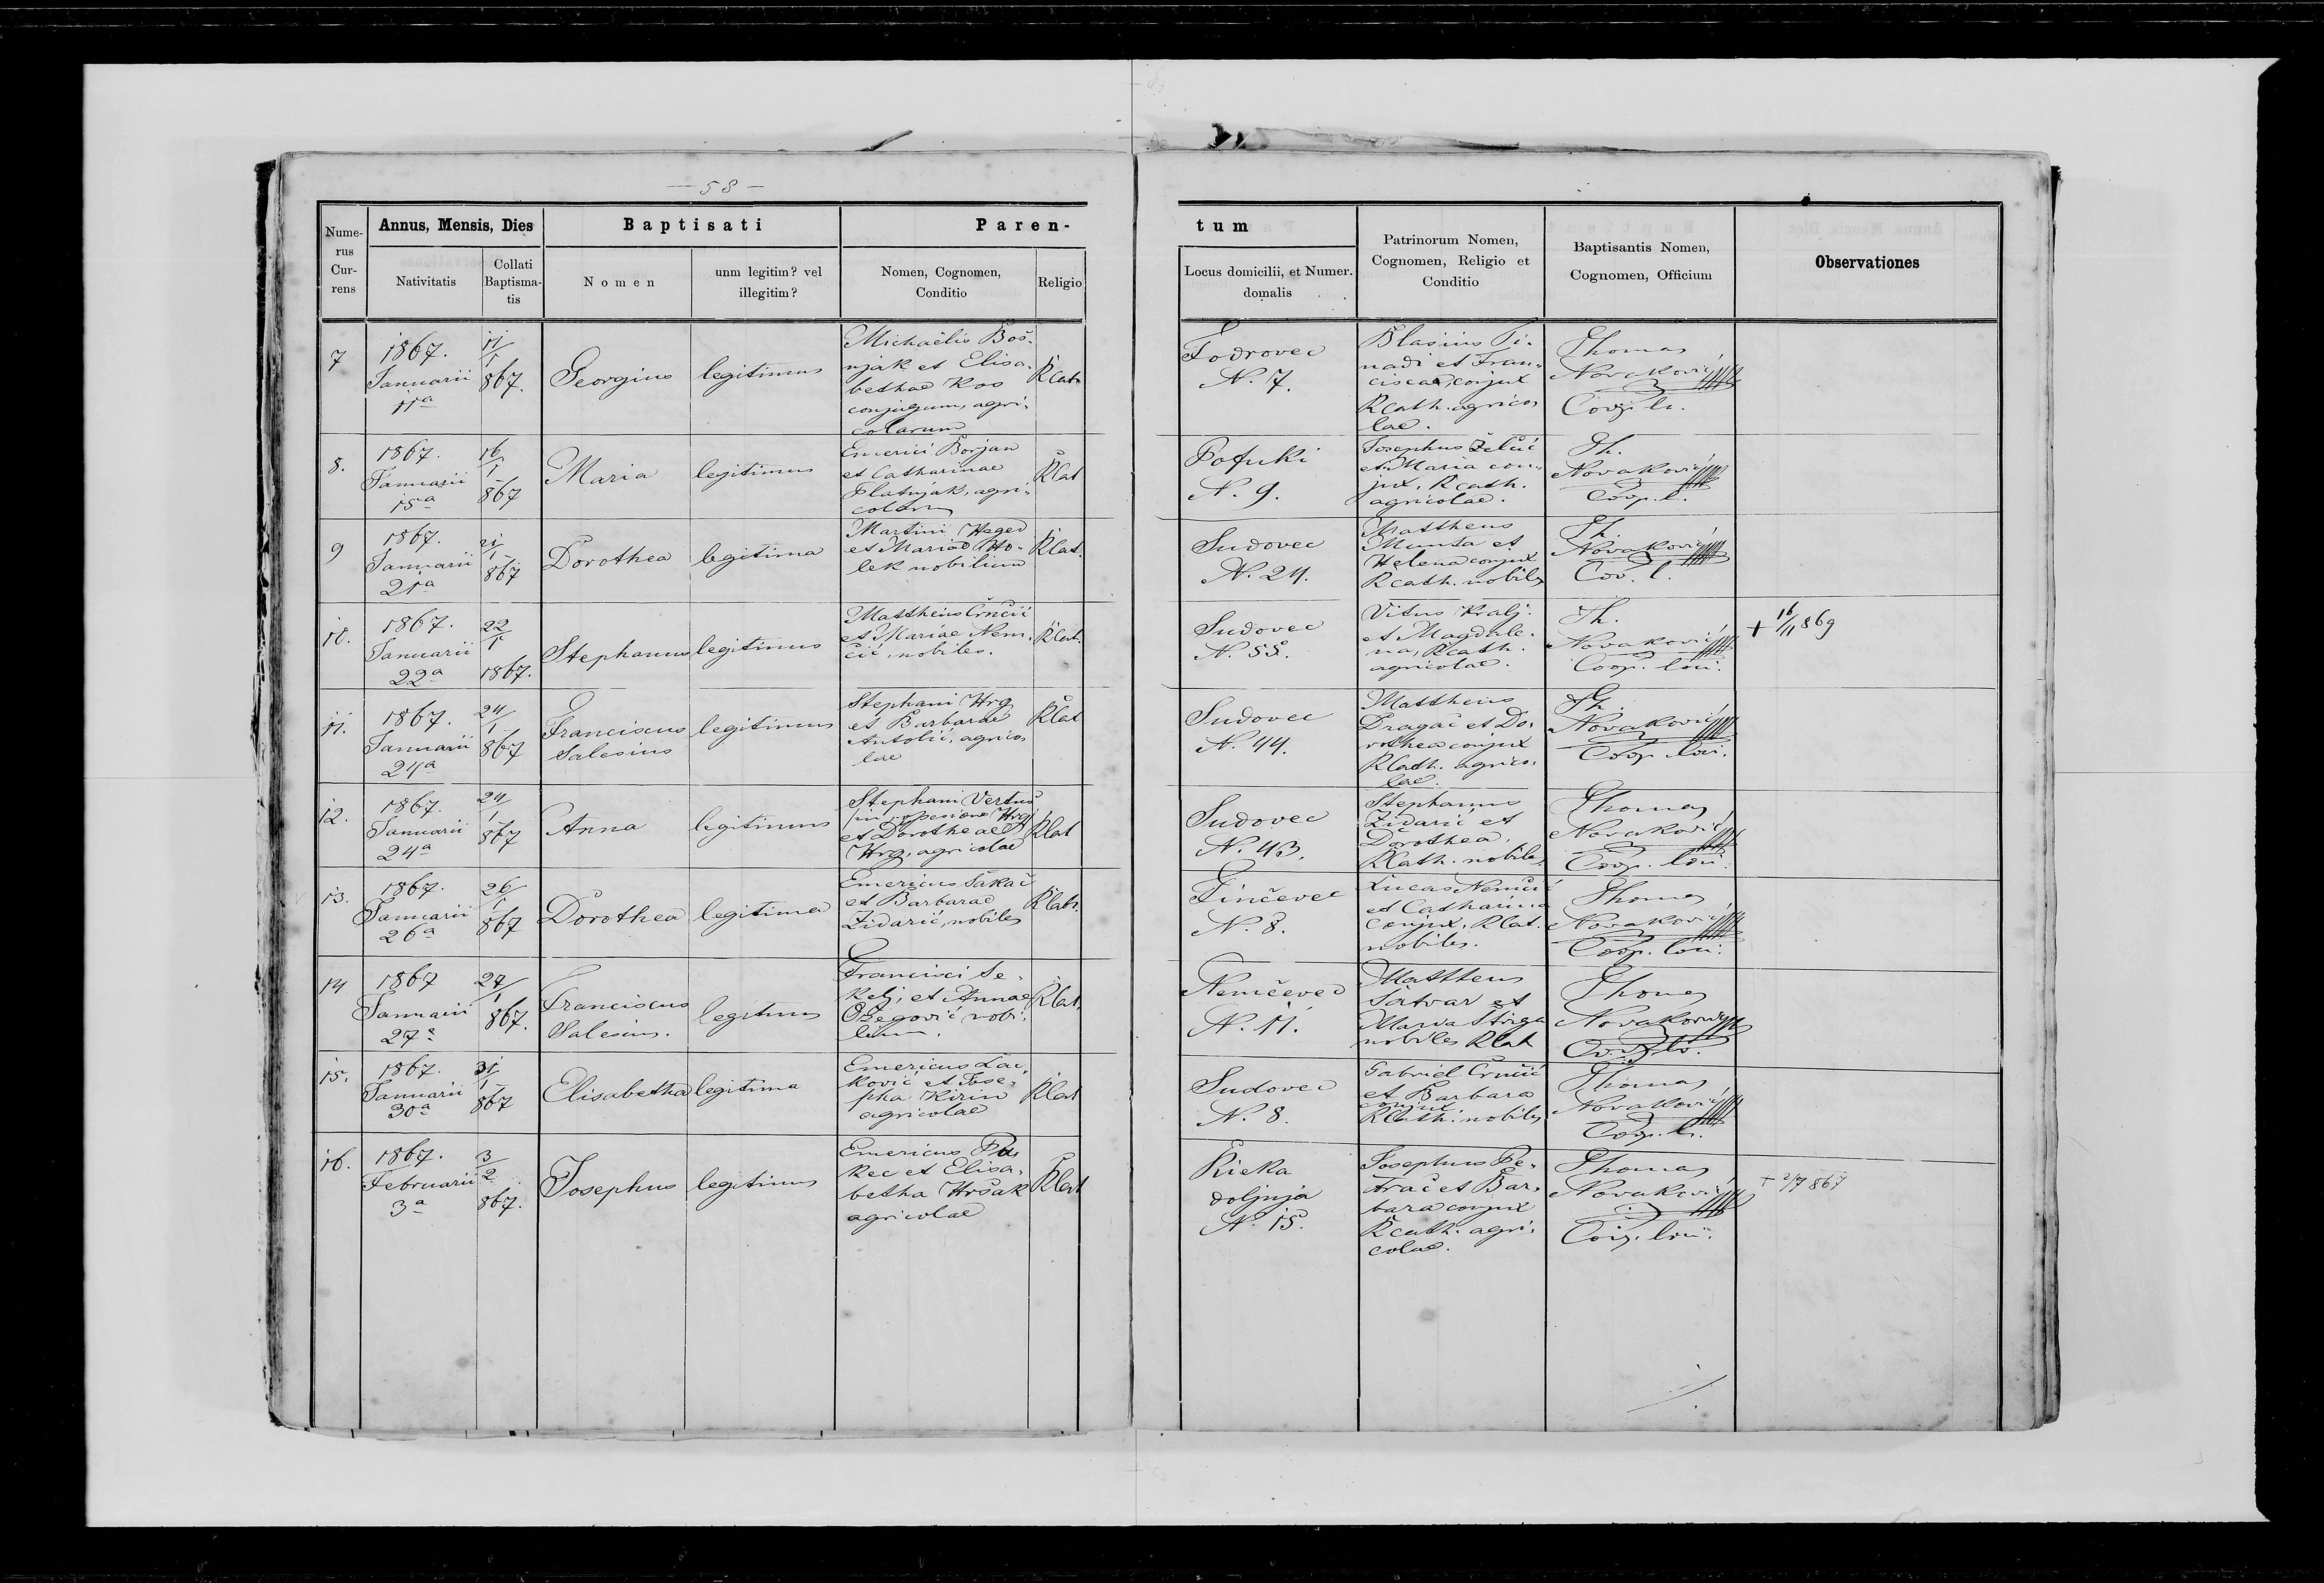 — 58 —
Nume-
rus
Cur-
rens
Annus, Mensis, Dies
Nativitatis
Collati
Baptisma-
tis
Baptisati
Nomen
unm legitim? vel
illegitim?
Paren-
Nomen, Cognomen,
Conditio
Religio
tum
Locus domicilii, et Numer.
domalis
Patrinorum Nomen,
Cognomen, Religio et
Conditio
Baptisantis Nomen,
Cognomen, Officium
Observationes
7
1867.
Januarii
11a
11/1
867.
Georgius
legitimus
Michaëlis Boš-
njak et Elisa-
bethae Kos
conjugum, agri-
colarum
Rcat.
Fodrovec
N. 7.
Blasius
et Fran-
cisca, conjux
Rcath. agrico-
lae.
Thomas
Novaković
Coop. lo.
8.
1867.
Januarii
15a
16/1
867
Maria
legitimus
Emerici Borjan
et Catharinae
Platnjak, agri-
colarum
Rcat
Pofuki
N. 9.
Josephus Želčić
et Maria con-
jux, Rcath.
agricolae.
Th.
Novaković
Coop. l.
9
1867.
Januarii
21a
21/1
867
Dorothea
legitima
Martini
et Mariae
nobilium
Rcat.
Sudovec
N. 24.
Mattheus
et
Helena conjux
Rcath. nobiles
Th.
Novaković
Coo. l.
10.
1867.
Januarii
22a
22/1
1867.
Stephanus
legitimus
Mattheus Črnčić
et Mariae Nem-
čić, nobiles.
Rcat.
Sudovec
N. 55.
Vitus Kralj
et Magdale-
na, Rcath.
agricolae.
Th.
Novaković
Coop. loci.
+ 16/11 869
11.
1867.
Januarii
24a
24/1
867
Franciscus
Salesius
legitimus
Stephani Hrg
et Barbarae
Antolić, agrico-
lae
Rcat
Sudovec
N. 44.
Mattheus
Dragač et Do-
rothea conjux
Rcath. agrico-
lae.
Th.
Novaković
Coop. loci.
12.
1867.
Januarii
24a
24/1
867
Anna
legitimus
Stephani Vertuš
Hrg
et Dorotheae
Hrg, agricolae
Rcat
Sudovec
N. 43.
Stephanus
Židarić et
Dorothea,
Rcath. nobiles.
Thomas
Novaković
Coop. loci.
13.
1867.
Januarii
26a
26/1
867
Dorothea
legitima
Emericus Sakač
et Barbarae
Židarić, nobiles
Rcath.
Finčevec
N. 8.
Lucas Nemčić
et Catharina
conjux, Rcat.
nobiles.
Thomas
Novaković
Coop. loci.
14
1867
Januarii
27a
27/1
867.
Franciscus
Salesius.
legitimus
Francisci Se-
kelj, et Annae
Ožegović nobi-
lium.
Rcat.
Nemčevec
N. 11.
Mattheus
Šatvar et
Maria Štriga
nobiles Rcat
Thomas
Novaković
Coop. lo.
15.
1867.
Januarii
30a
31/1
867
Elisabetha
legitima
Emericus Lac-
ković et Jose-
pha Kirin
agricolae
Rcat
Sudovec
N. 8.
Gabriel Črnčić
et Barbara
conjux
Rcath. nobiles
Thomas
Novaković
Coop. l.
16.
1867.
Februarii
3a
3/2
867.
Josephus
legitimus
Emericus Pu-
kec et Elisa-
betha Hršak
agricolae
Rcat
Rieka
doljnja
N. 15.
Josephus Pe-
trač et Bar-
bara conjux
Rcath. agri-
colae.
Thomas
Novaković
Coop. loci.
+ 2/7 867